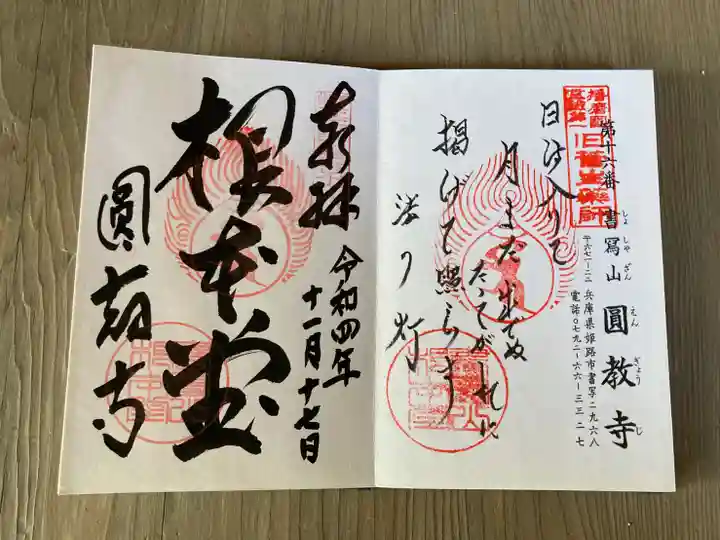 播磨西国
霊場第一
旧蹟生薬師
第十六番 書寫山 圓教寺
しょ しゃ ざん えん ぎょう じ
〒六七一-二二 兵庫県姫路市書写二九六八
電話〇七九二-六六-三三二七
日は入りて
月まだ出でぬ
たそがれに
掲げて照らす
法の灯
奉拝
令和四年
十一月十七日
根本堂
圓教寺